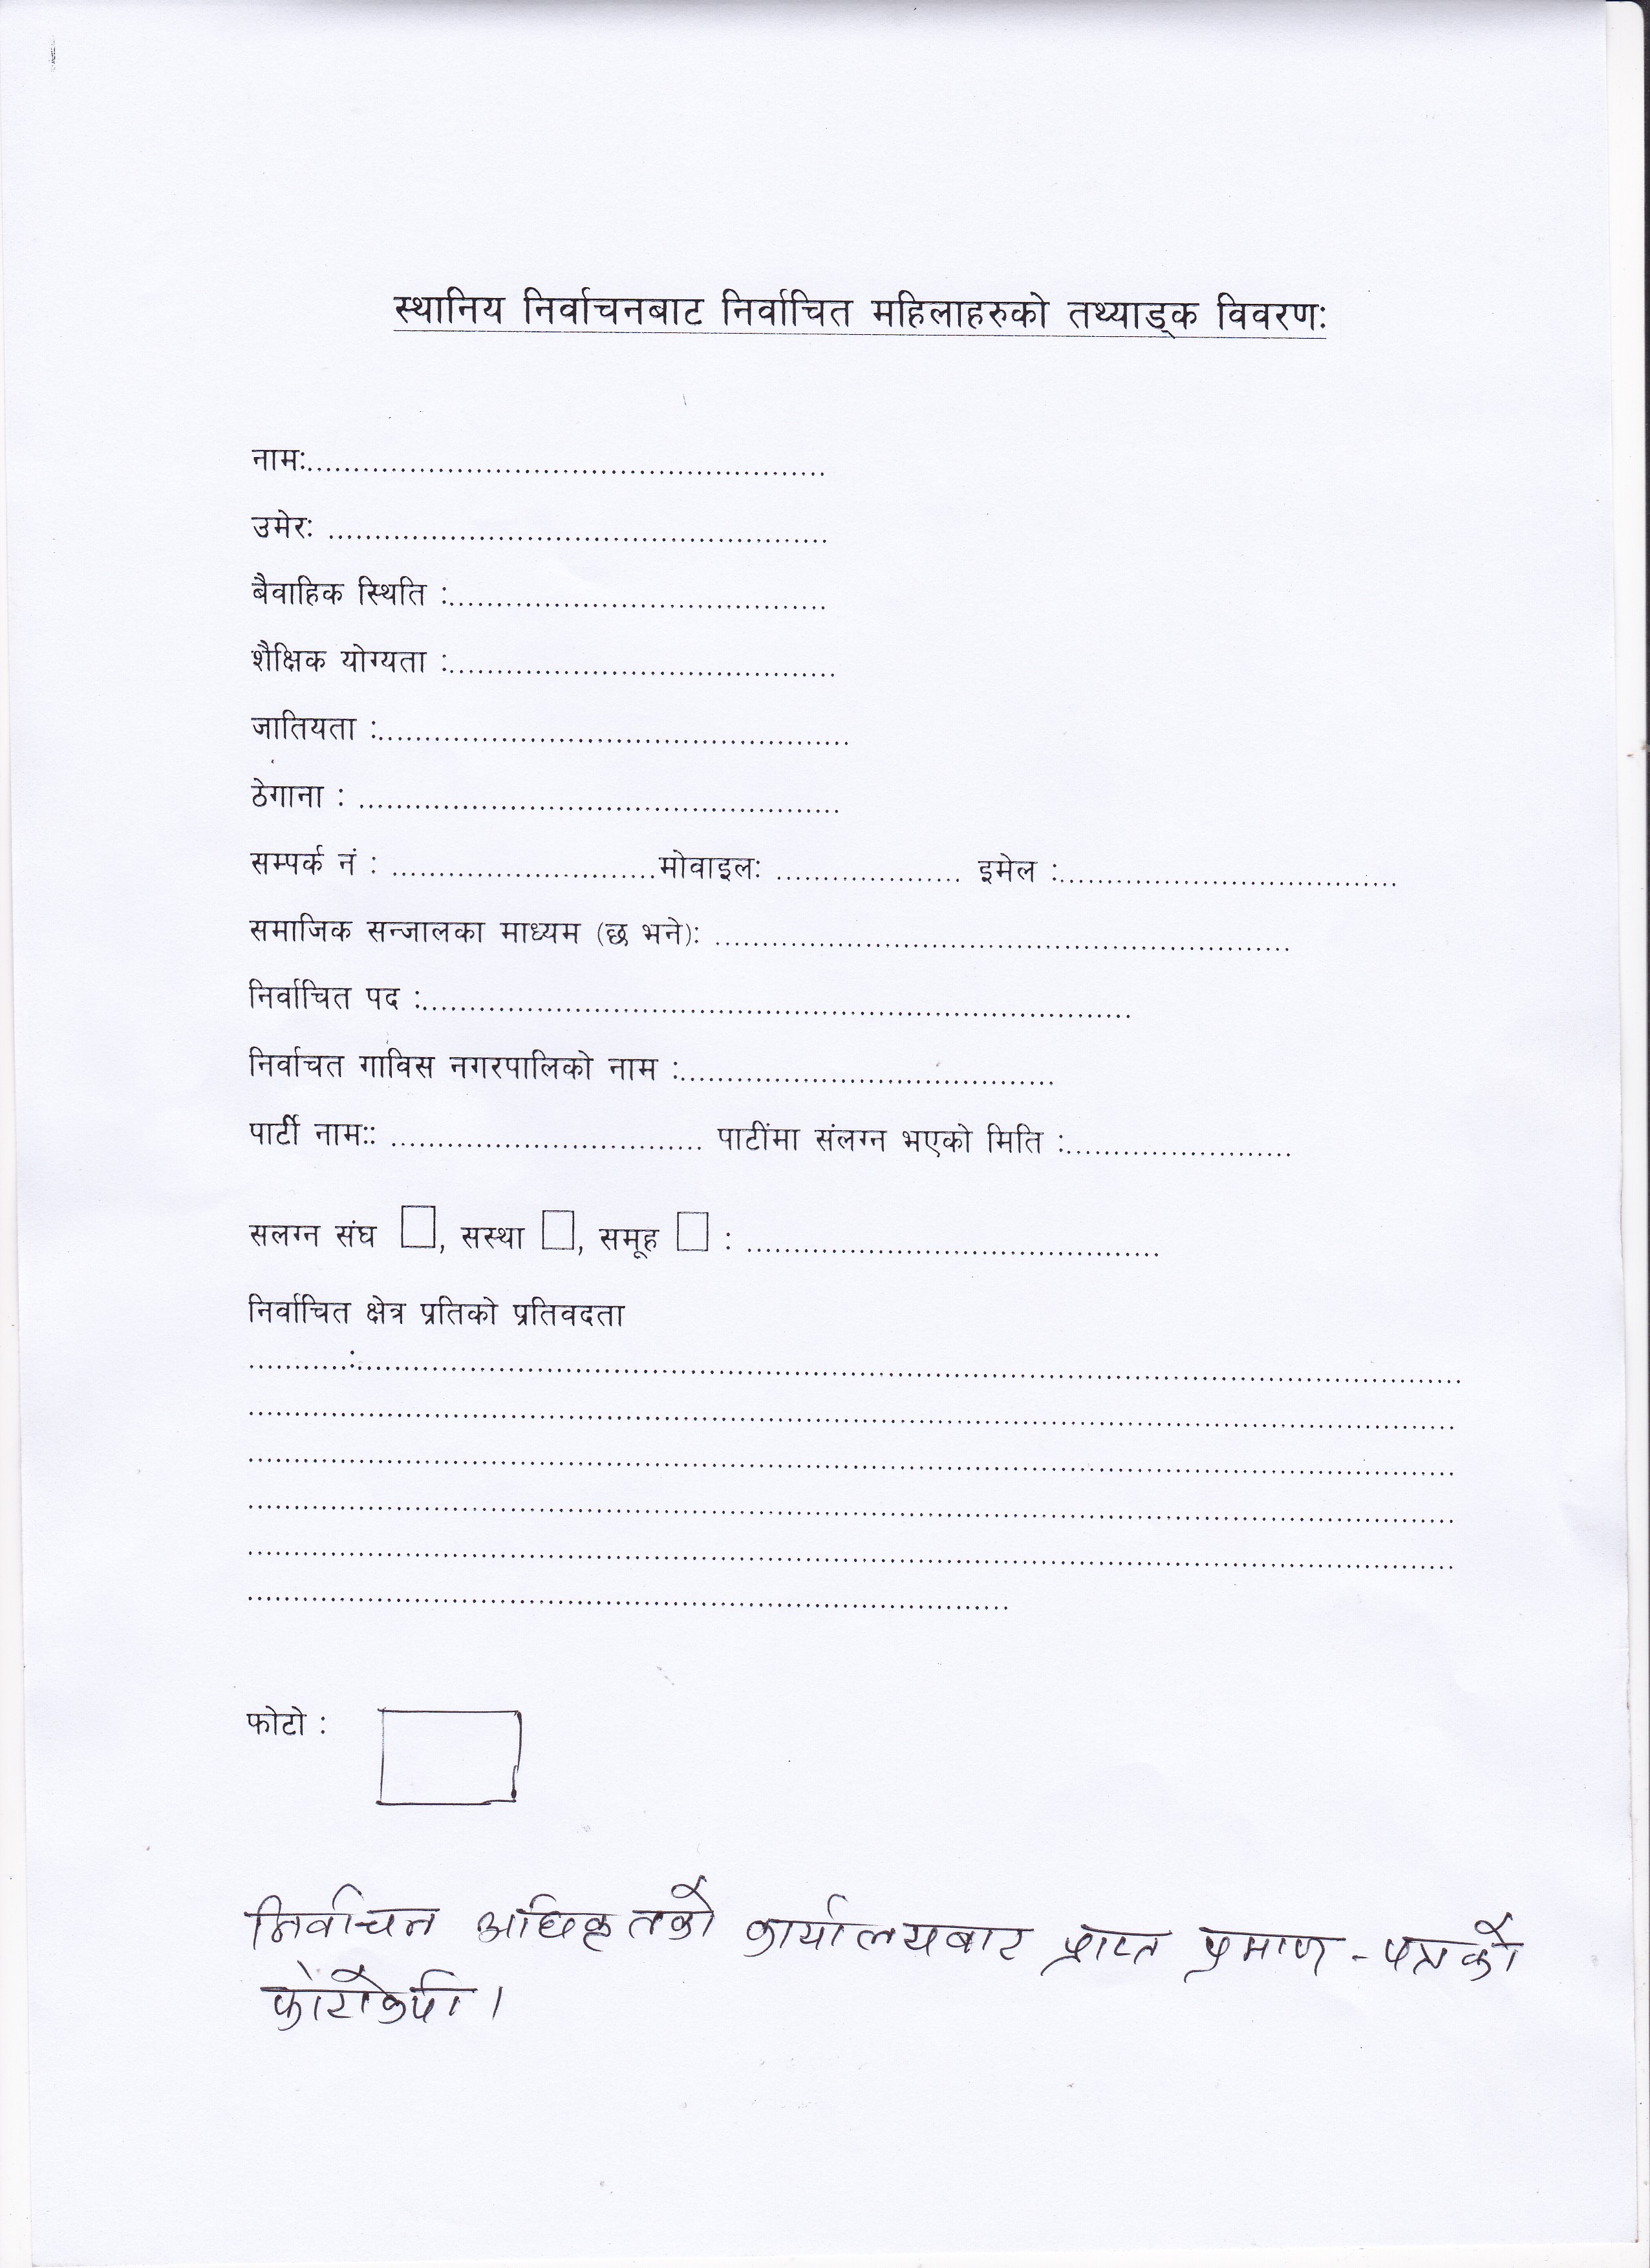 स्थानिय निर्वाचनबाट निर्वाचित महिलाहरुको तथ्याड्क विवरण:
नाम:..........................................................
उमेर: .......................................................
बैवाहिक स्थिति :..........................................
शैक्षिक योग्यता :...........................................
जातियता :....................................................
ठेगाना : .....................................................
सम्पर्क नं : .............................मोवाइल: ..................... इमेल :.....................................
समाजिक सन्जालका माध्यम (छ भने): ................................................................
निर्वाचित पद :...............................................................................
निर्वाचत गाविस नगरपालिको नाम :..........................................
पार्टी नाम:: ................................... पार्टीमा संलग्न भएको मिति :.........................
सलग्न संघ □, सस्था □, समूह □ : ..............................................
निर्वाचित क्षेत्र प्रतिको प्रतिवदता
...........:..........................................................................................................................
......................................................................................................................................
......................................................................................................................................
......................................................................................................................................
......................................................................................................................................
.....................................................................................
फोटो :
निर्वाचन अधिकृतको कार्यालयबाट प्राप्त प्रमाण-पत्रको
फोटोकपी।